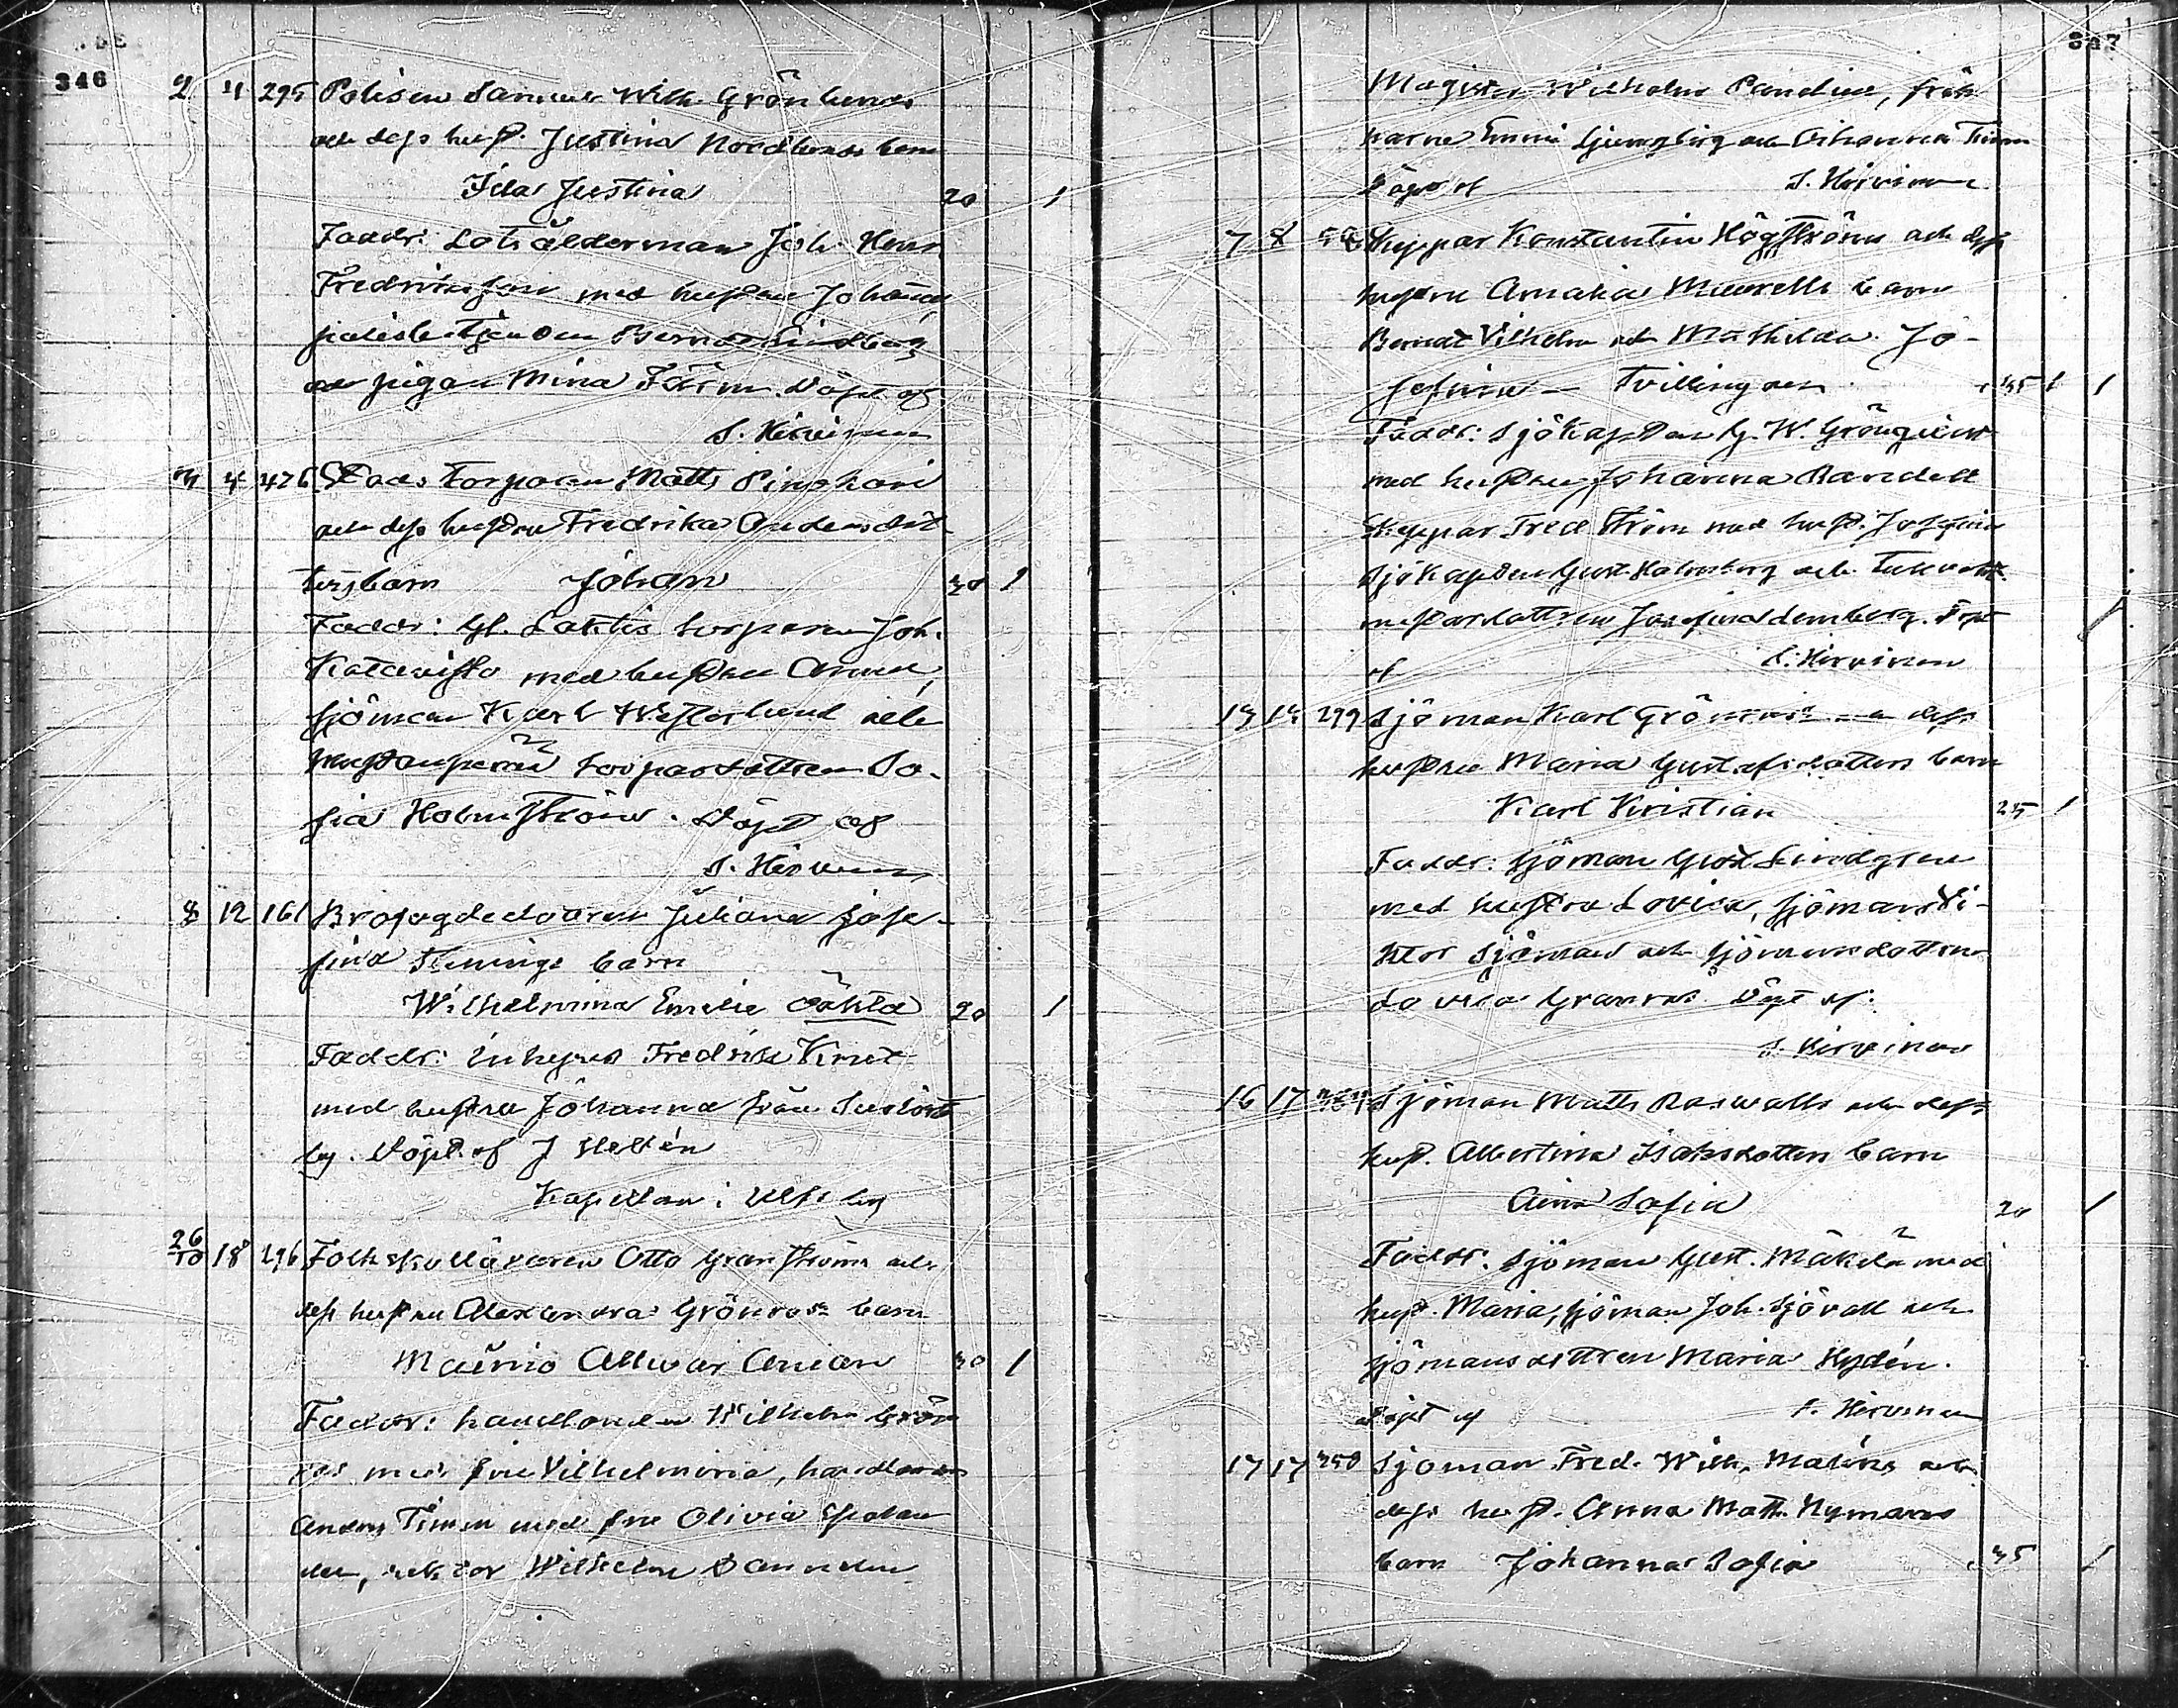 346
2 4 295 Polisen Samuel Wilh. Grönlunds
och dess hust. Justina Nordlunds barn
Ida Justina 20 1
Faddr: Lotsålderman Joh. Henr.
Fredriksson med hustru Johanna,
polisbetjenden Bernat Lindberg
och pigan Mina Döpt af
S. Hirvinen
3 4 426 Stads Torparen Matts
och dess hustru Fredrika
ters barn Johan 30 1
Faddr: Gl. torparen Joh.
med hustru Anna,
sjöman Karl Westerlund och
torparedottren So-
fia Holmström. Döpt af
S. Hirvinen
8 12 161 Juliana Jose-
fina Flemings barn
Wilhelmina Emilie oäkta 20 1
Faddr: inhyses Fredrik
med hustru Johanna från
by. Döpt af J Hellén
Kapellan i Ulfsby
26/10 18 296 Folkskolläraren Otto Granström och
dess hustru Alexandra Grönroos barn
Mauno Allvar Anian 30 1
Faddr: handlanden Wilhelm Grön
roos med fru Vilhelmina, handlanden
Anders Timm med fru Olivia
der, rektor Wilhelm
347
Magister Wilhelm frök
narne Emmi Ljungberg och Johanna Timm
Döpt af S. Hirvinen
7 8 Skeppar Konstantin Högström och dess
hustru Amalia barn
Bernat Vilhelm och Mathilda Jo-
sefina - Tvillingar 35 1 1
Faddr: sjökapten G. W. Grönqvist
med hustru Johanna
Skeppar Fred Ström med hust. Josefina
sjökapten Gust. Holmberg och
mästardottren Josefina Lemberg. Döpt
af S. Hirvinen
13 14 299 Sjöman Karl Grönroos och dess
hustru Maria Gustafsdotters barn
Karl Kristian 25 1
Faddr: sjöman Gust Lindgren
med hustru Lovisa, sjöman Vi-
ktor Sjöman och sjömansdottren
Lovisa Granroos. Döpt af:
S. Hirvinen
16 17 Sjöman Matts Roswalls och dess
hust. Albertina Isaksdotters barn
Aina Sofia 20 1
Faddr: sjöman Gust. Mäkelä med
hust. Maria, sjöman Joh. Sjövall och
sjömansdottren Maria Hydén.
Döpt af S. Hirvinen
17 17 350 Sjöman Fred. Wilh. Malins och
dess hust. Anna Matt. Nymans
barn Johanna Sofia 35 1